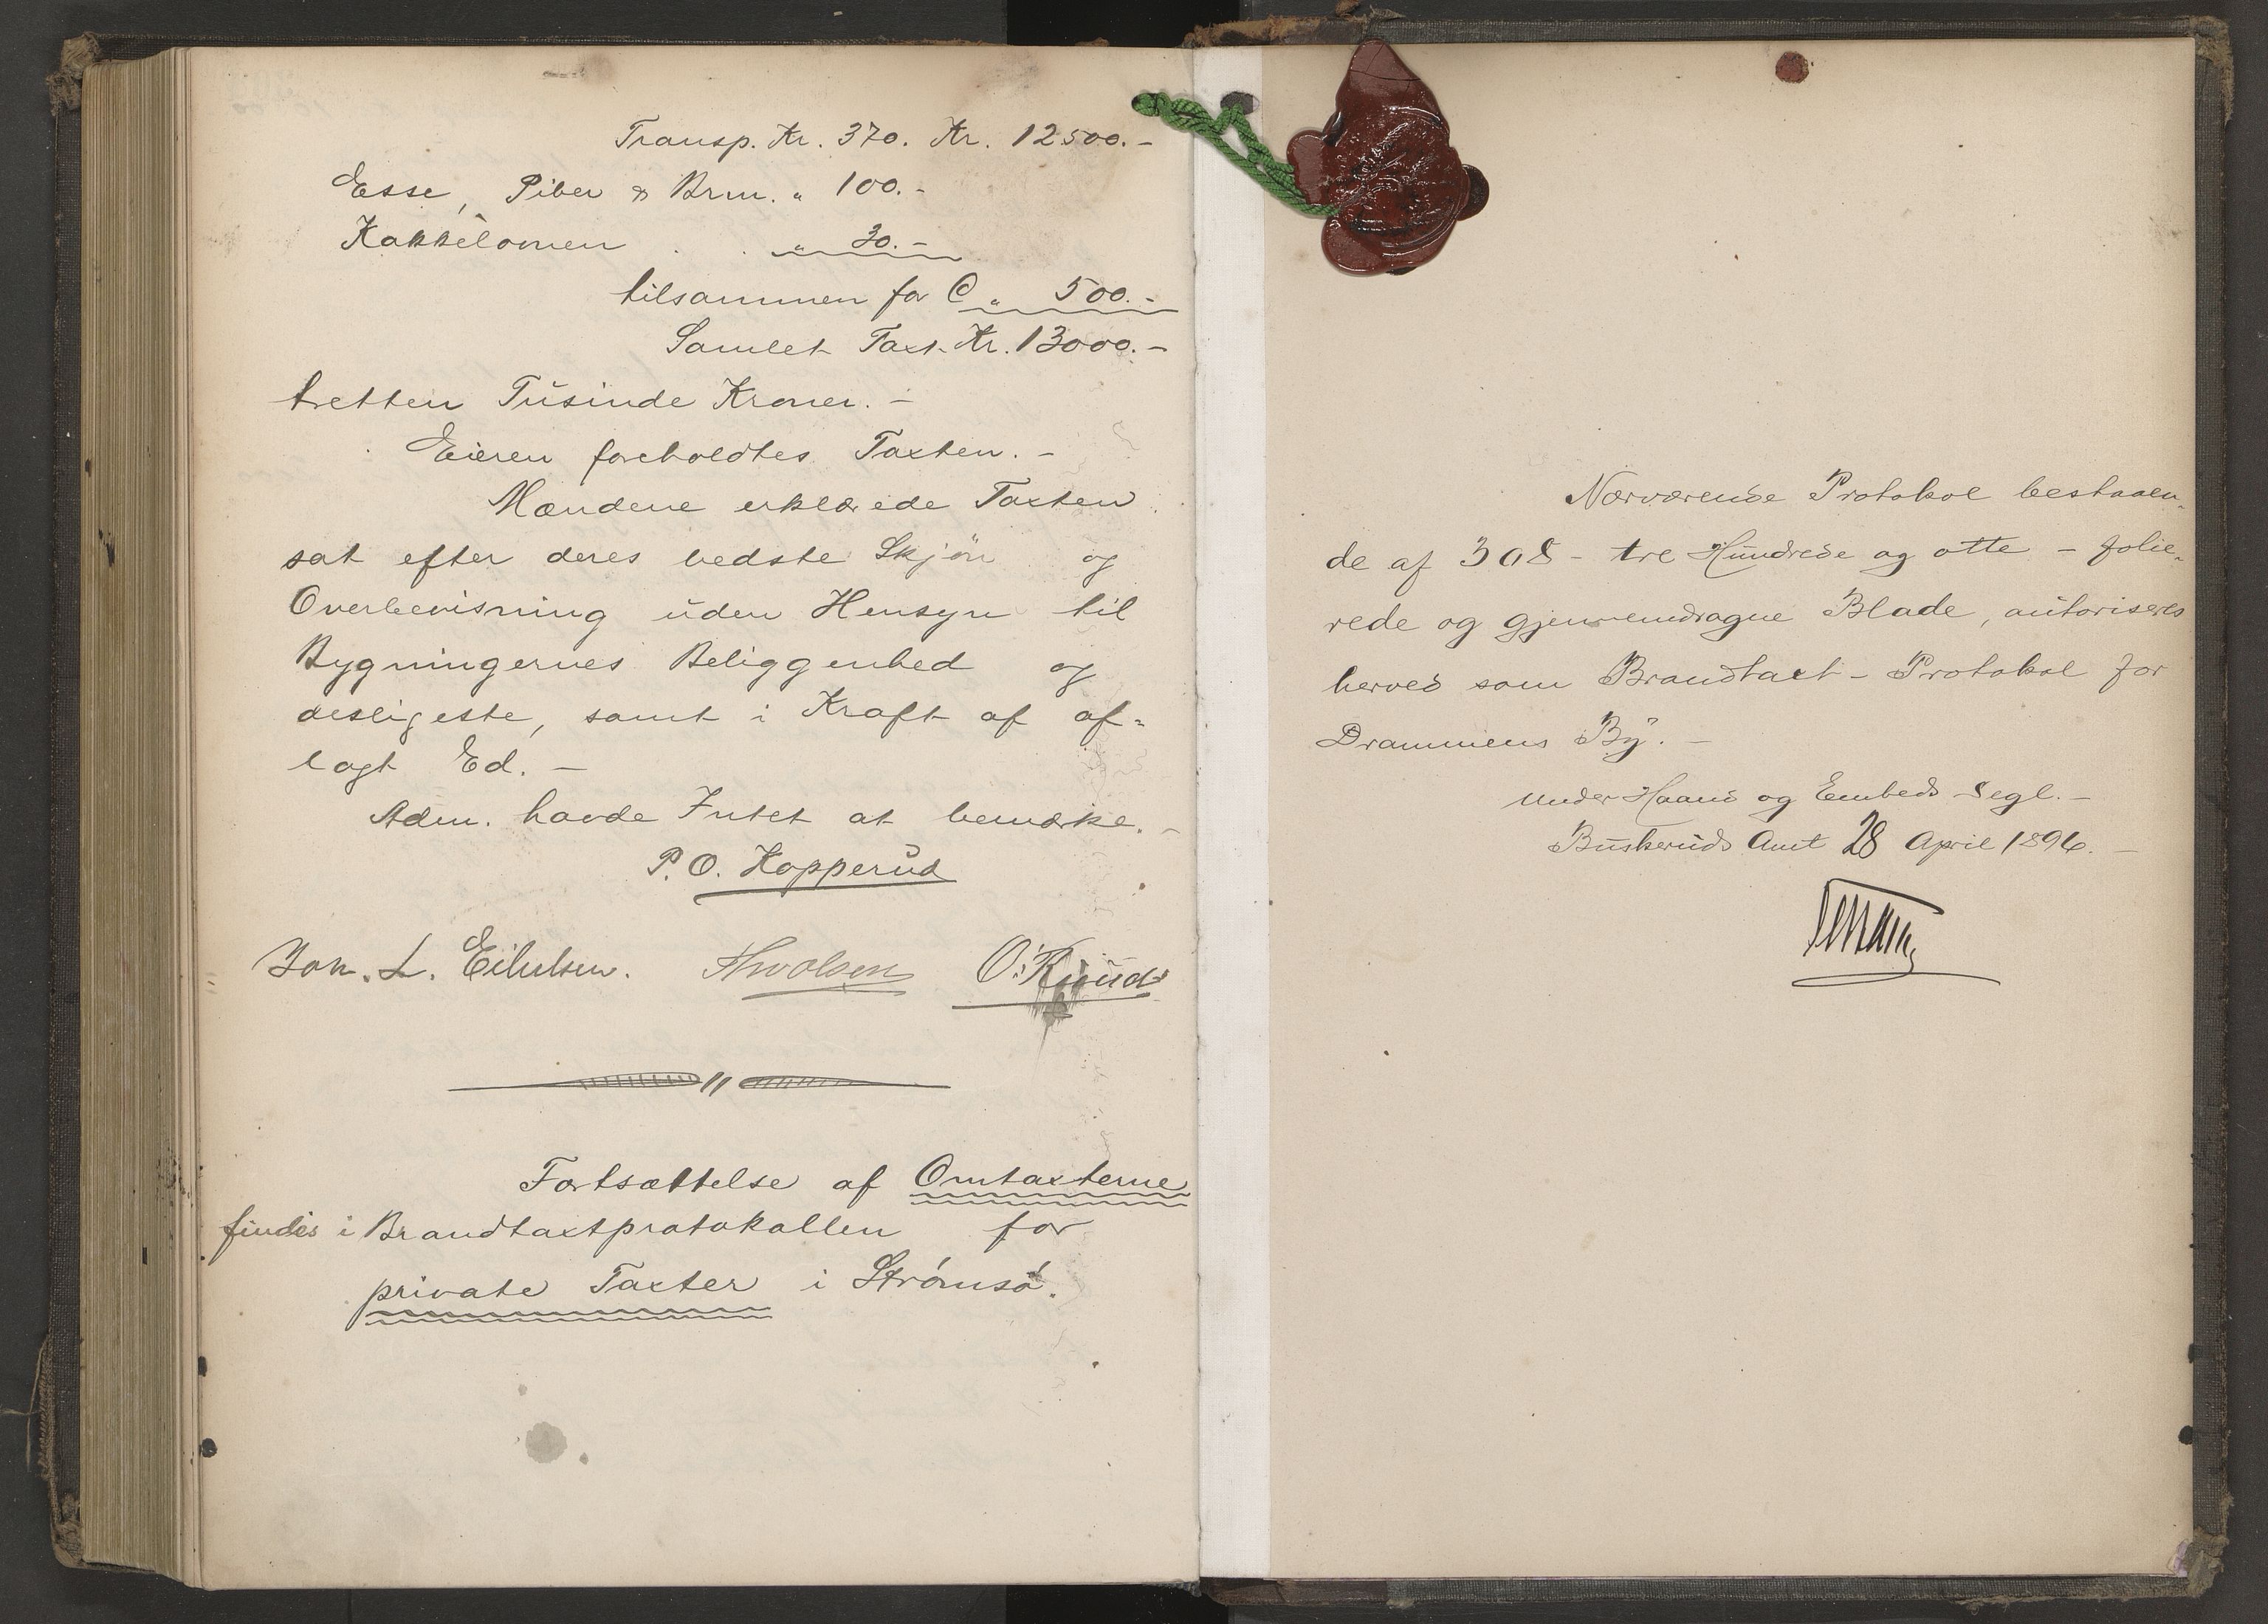 Transp. Kr. 370. Kr. 12500.-
Esse, Piber & Brm. " 100.-
Kakkelovnen . . " 30.-
tilsammen for C " 500.-
Samlet Taxt Kr. 13000.-
tretten Tusinde Kroner.-
Eieren foreholdtes Taxten.-
Mændene erklærede Taxten
sat efter deres bedste Skjön og
Overbevisning uden Hensyn til
Bygningernes Beliggenhed og
desligeste, samt i Kraft af af-
lagt Ed.-
Adm. havde Intet at bemærke.-
P. O. Kopperud
Joh. L. Eilertsen. Thvolsen O. Ruud
Fortsættelse af Omtaxterne
findes i Brandtaxtprotokollen for
private Taxter i Strömsö.
Nærværende Protokol bestaaen-
de af 308 - tre Hundrede og otte - folie-
rede og gjennemdragne Blade, autoriseres
herved som Brandtaxt-Protokol for
Drammens By.-
Under Haand og Embeds Segl.-
Buskeruds Amt 28 April 1896.-